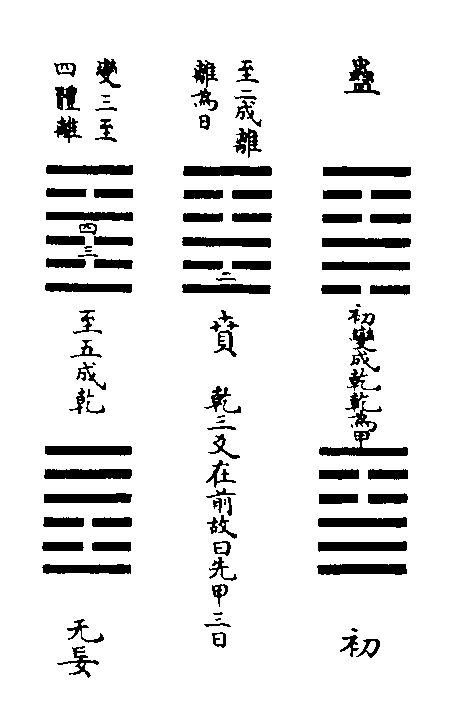 蠱
初變成乾乾為甲
初
至二成離
離為日
二
賁
乾三爻在前故曰先甲三日
變三至
四體離
四
三
至五成乾
无妄